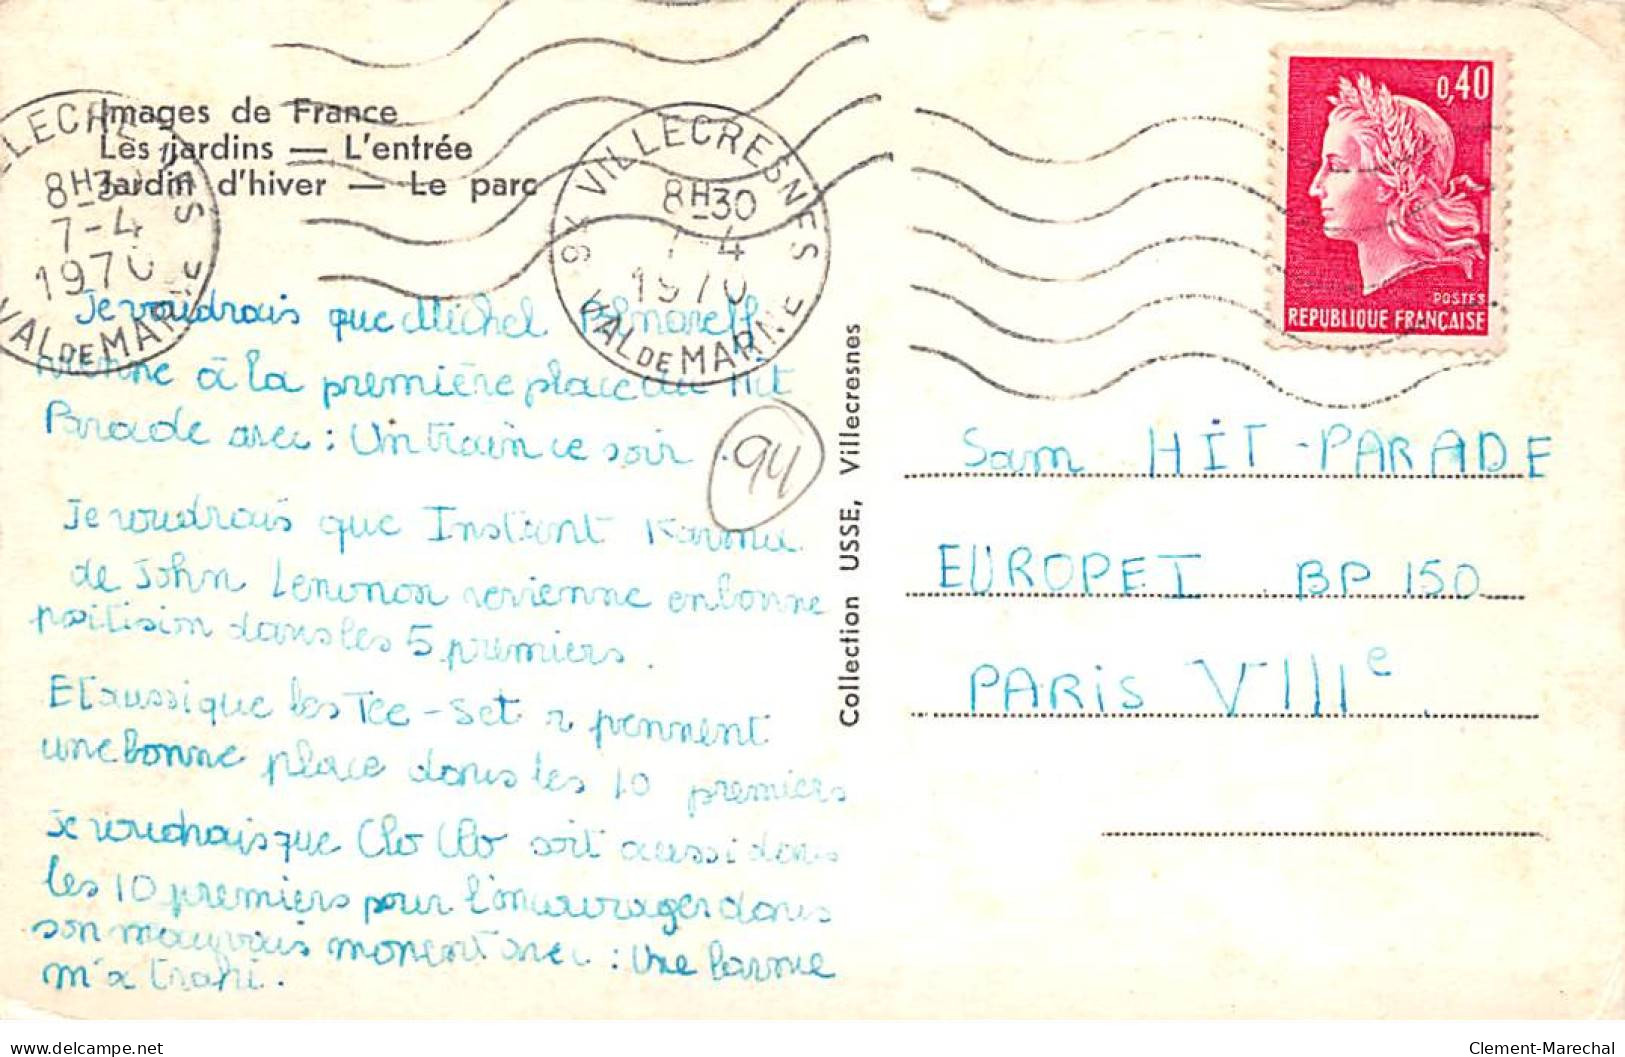 Images de France
Les jardins — L'entrée
Jardin d'hiver — Le parc
VILLECRESNES
8H30
7-4
1970
VAL DE MARNE
94 VILLECRESNES
8H30
7-4
1970
VAL DE MARNE
0,40
POSTES
REPUBLIQUE FRANÇAISE
Je voudrais que Michel Polnareff
vienne à la première place du Hit
Parade avec : Un train ce soir .
94
Je voudrais que Instant Karma
de John Lennon revienne en bonne
position dans les 5 premiers .
Et aussi que les Tee-Set prennent
une bonne place dans les 10 premiers
Je voudrais que Clo Clo soit aussi dans
les 10 premiers pour l'encourager dans
son mauvais moment avec : Une larme
m'a trahi .
Collection USSE, Villecresnes
Sam HIT-PARADE
EUROPE I BP 150
PARIS VIIIe .
delcampe.net
Clement-Marechal